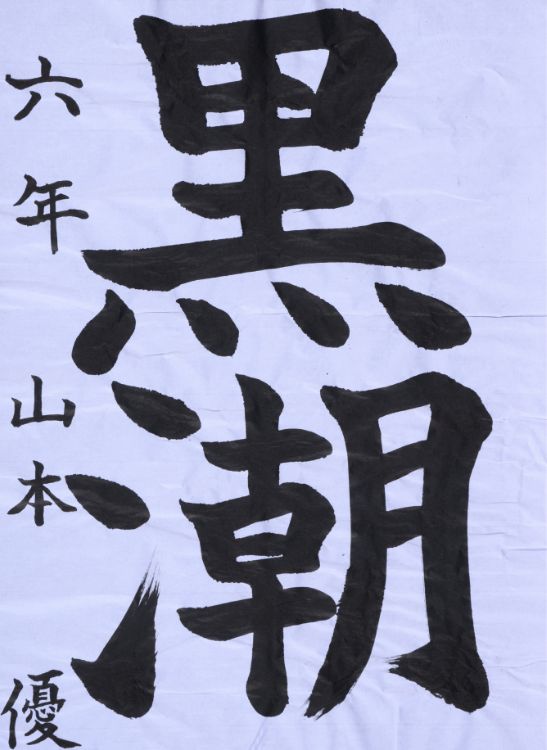 黒潮
六年 山本 優